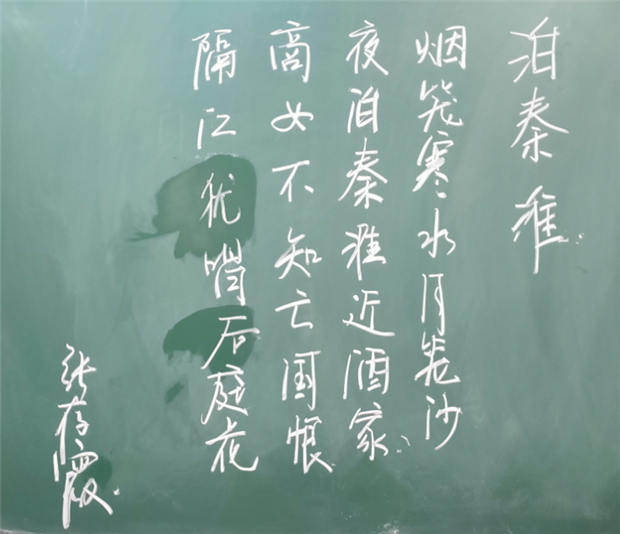 泊秦淮
烟笼寒水月笼沙
夜泊秦淮近酒家
商女不知亡国恨
隔江犹唱后庭花
张存霞